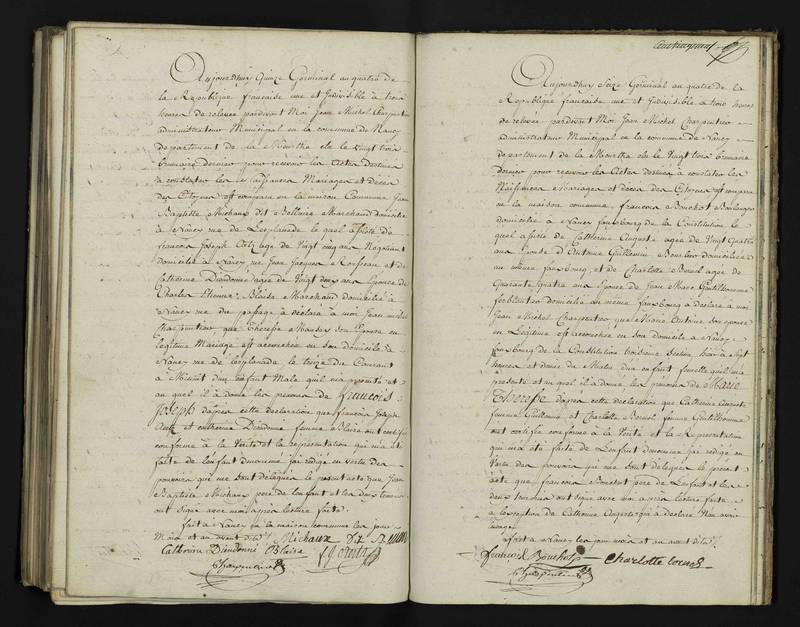 Aujourdhuy Quinze Germinal an quatre de
la Republique francaise une et Indivisible à trois
heures de relevée pardevant Moi Jean Michel Charpentier
administrateur Municipal en la commune de Nancy
departement de la Meurthe elu le vingt trois
brumaire dernier pour recevoir les actes destinés
à constater les Naissances Mariages et décès
des Citoyens est comparu en la maison Commune Jean
Baptiste Michaux dit Bellaire Marchand domicilié
à Nancy rue de Lesplanade le quel assisté de
francois Joseph agé de Vingt cinq ans Negociant
domicilié à Nancy rue Jean Jacques Rousseau et de
Catherine Dieudonné agée de Vingt deux ans Epouse de
Charles Blaise Marchand domicilié à
Nancy rue du passage à déclaré à moi Jean michel
Charpentier que Therese son Epouse en
legitime Mariage est accouchée en son domicile à
Nancy rue de lesplanade le treize du Courant
à Minuit d'un enfant Male quil m'a presenté et
au quel il à donné les prenoms de francois
Joseph d'après cette declaration que francois Joseph
et catherine Dieudonné femme Blaise ont certifié
conforme à la Verité et la representation qui m'a été
faite de l'enfant denommé j'ai redigé en vertu des
pouvoirs qui me sont delegués le present acte que Jean
Baptiste Michaux pere de l'enfant et les deux temoins
ont signé avec moi après lecture faite.
fait à Nancy en la maison commune les jour
Mois et an avant dits. Michaux
Catherine Dieudonné Blaise
Charpentier
Aujourdhuy Seize Germinal an quatre de la
Republique francaise une et Indivisible à trois heures
de relevée pardevant Moi Jean Michel Charpentier
administrateur Municipal en la commune de Nancy
departement de la Meurthe elu le Vingt trois brumaire
dernier pour recevoir les Actes destinés à constater les
Naissances Mariages et deces des Citoyens est comparu
en la maison commune francois Bouchot Boulanger
domicilié à Nancy fauxbourg de la Constitution le
quel assisté de Catherine agée de Vingt quatre
ans Epouse d'Antoine Guillemin domicilié
au même fauxbourg et de Charlotte agée de
Quarante quatre ans Epouse de Jean Marc Gentilhomme
ferblantier domicilié au même fauxbourg à declaré à moi
Jean Michel Charpentier que Marie Antoine son epouse
en Legitime est accouchée en son domicile à Nancy
fauxbourg de la Constitution troisieme Section hier à Sept
heures et demie du Matin d'un enfant femelle quil m'a
presenté et au quel il à donné les prenoms de Marie
Therese d'après cette declaration que Catherine
femme Guillemin et Charlotte femme Gentilhomme
ont certifié conforme à la Verité et la Representation
qui m'a été faite de L'enfant denommé j'ai redigé en
Vertu des pouvoirs qui me sont delegués le present
acte que francois Bouchot pere de L'enfant et les
deux temoins ont signé avec moi après lecture faite
à lexception de Catherine qui à declaré N'en avoir
l'usage.
fait à Nancy les jour mois et an avant dits.
francois Bouchot Charlotte
Charpentier